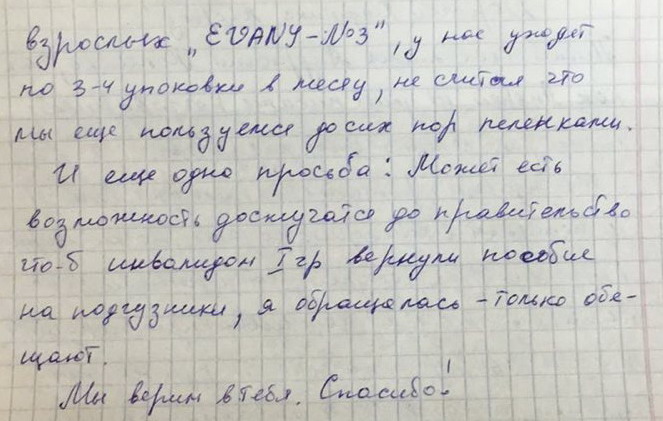 взрослых „EVANY-№3", у нас уходят
по 3-4 упоковки в месяц, не считая что
мы еще пользуемся до сих пор пеленками.
И еще одно просьба: Может есть
возможность достучатся до правительство
что-б инвалидом I гр вернули пособие
на подгузники, я обращалась - только обе-
щают.
Мы верим в тебя. Спасибо!